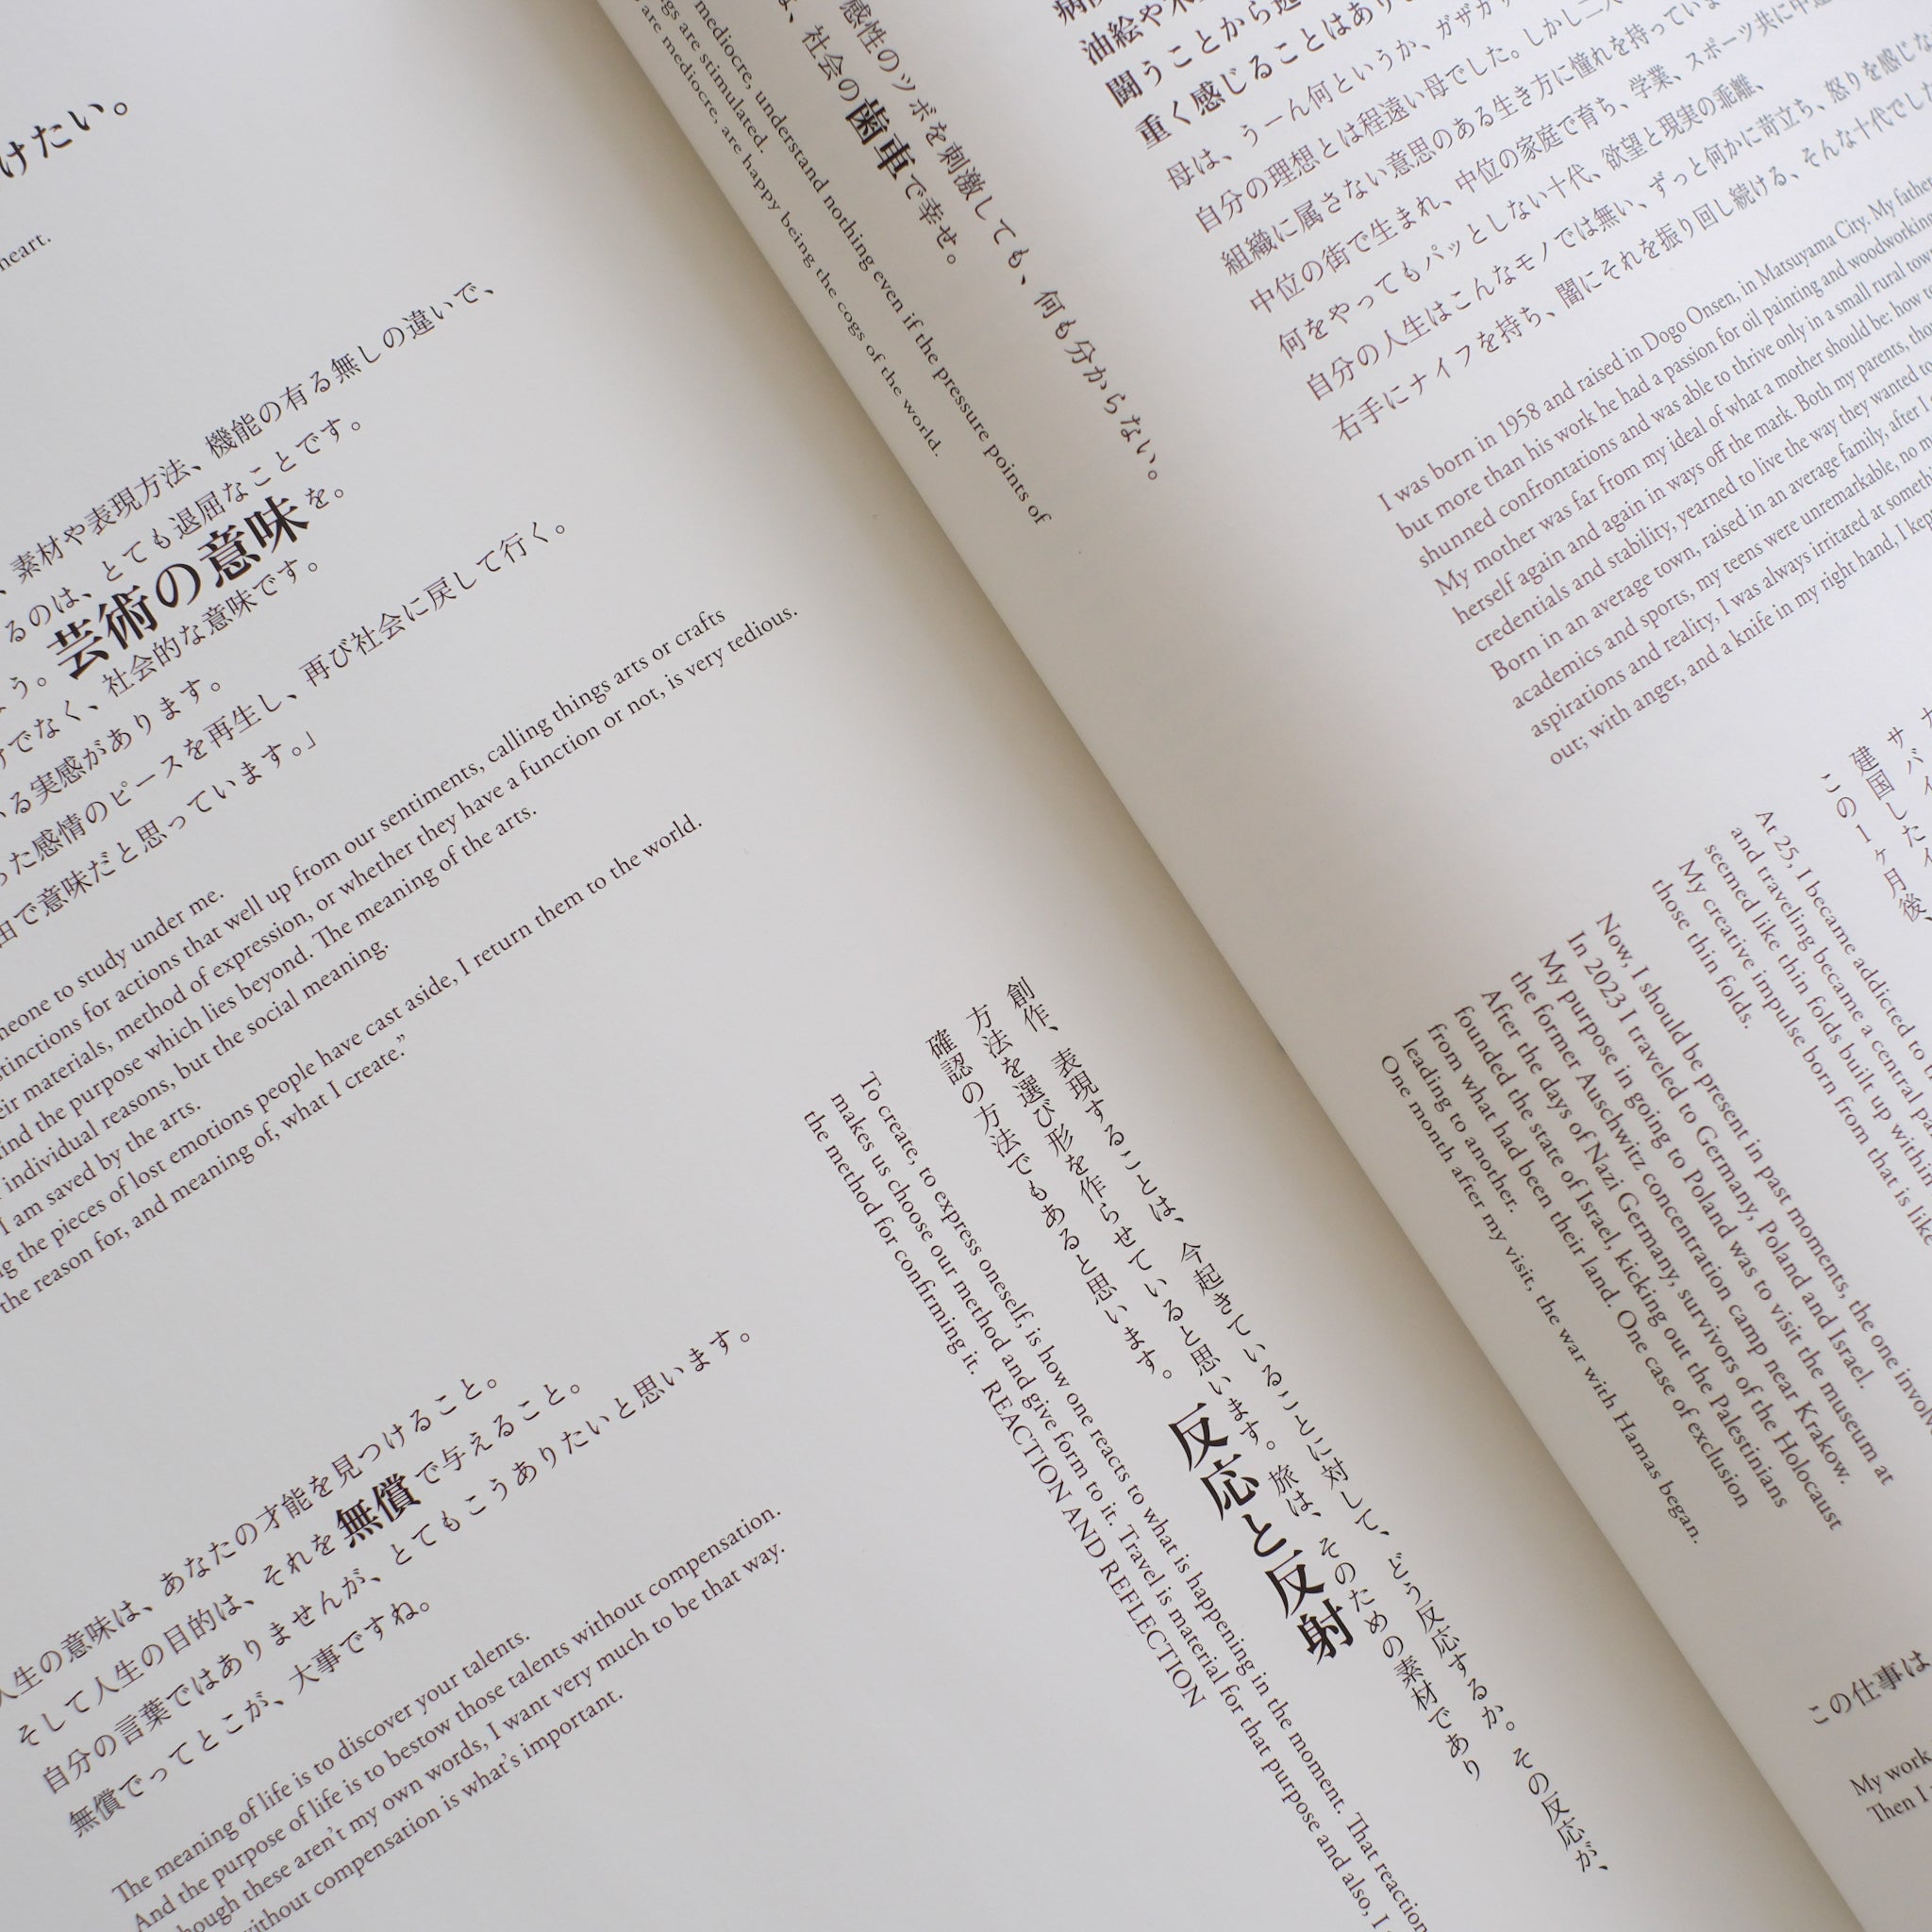 けたい。
heart.
素材や表現方法、機能の有る無しの違いで、
るのは、とても退屈なことです。
う。芸術の意味を。
でなく、社会的な意味です。
る実感があります。
った感情のピースを再生し、再び社会に戻して行く。
由で意味だと思っています。」
meone to study under me.
stinctions for actions that well up from our sentiments, calling things arts or crafts
eir materials, method of expression, or whether they have a function or not, is very tedious.
ind the purpose which lies beyond. The meaning of the arts.
individual reasons, but the social meaning.
I am saved by the arts.
g the pieces of lost emotions people have cast aside, I return them to the world.
the reason for, and meaning of, what I create.”
人生の意味は、あなたの才能を見つけること。
そして人生の目的は、それを無償で与えること。
自分の言葉ではありませんが、とてもこうありたいと思います。
無償でってとこが、大事ですね。
The meaning of life is to discover your talents.
And the purpose of life is to bestow those talents without compensation.
hough these aren’t my own words, I want very much to be that way.
without compensation is what’s important.
感性のツボを刺激しても、何も分からない。
社会の歯車で幸せ。
mediocre, understand nothing even if the pressure points of
gs are stimulated.
are mediocre, are happy being the cogs of the world.
創作、表現することは、今起きていることに対して、どう反応するか。その反応が、
方法を選び形を作らせていると思います。旅は、そのための素材であり
確認の方法でもあると思います。
反応と反射
To create, to express oneself, is how one reacts to what is happening in the moment. That reaction
makes us choose our method and give form to it. Travel is material for that purpose and also, I
the method for confirming it. REACTION AND REFLECTION
油絵や木
闘うことから逃
重く感じることはあり
母は、うーん何というか、ガザガ
自分の理想とは程遠い母でした。しかし二人
組織に属さない意思のある生き方に憧れを持っていま
中位の街で生まれ、中位の家庭で育ち、学業、スポーツ共に中
何をやってもパッとしない十代、欲望と現実の乖離、
自分の人生はこんなモノでは無い、ずっと何かに苛立ち、怒りを感じな
右手にナイフを持ち、闇にそれを振り回し続ける、そんな十代でした
I was born in 1958 and raised in Dogo Onsen, in Matsuyama City. My father
but more than his work he had a passion for oil painting and woodworking
shunned confrontations and was able to thrive only in a small rural town
My mother was far from my ideal of what a mother should be: how to
herself again and again in ways off the mark. Both my parents, thou
credentials and stability, yearned to live the way they wanted to
Born in an average town, raised in an average family, after I
academics and sports, my teens were unremarkable, no m
aspirations and reality, I was always irritated at someth
out; with anger, and a knife in my right hand, I kept
サバイ
建国したイ
この1ヶ月後、
At 25, I became addicted to tr
and traveling became a central pa
seemed like thin folds built up within
My creative impulse born from that is like
those thin folds.
Now, I should be present in past moments, the one involv
In 2023 I traveled to Germany, Poland and Israel.
My purpose in going to Poland was to visit the museum at
the former Auschwitz concentration camp near Krakow.
After the days of Nazi Germany, survivors of the Holocaust
founded the state of Israel, kicking out the Palestinians
from what had been their land. One case of exclusion
leading to another.
One month after my visit, the war with Hamas began.
この仕事は
My work
Then I